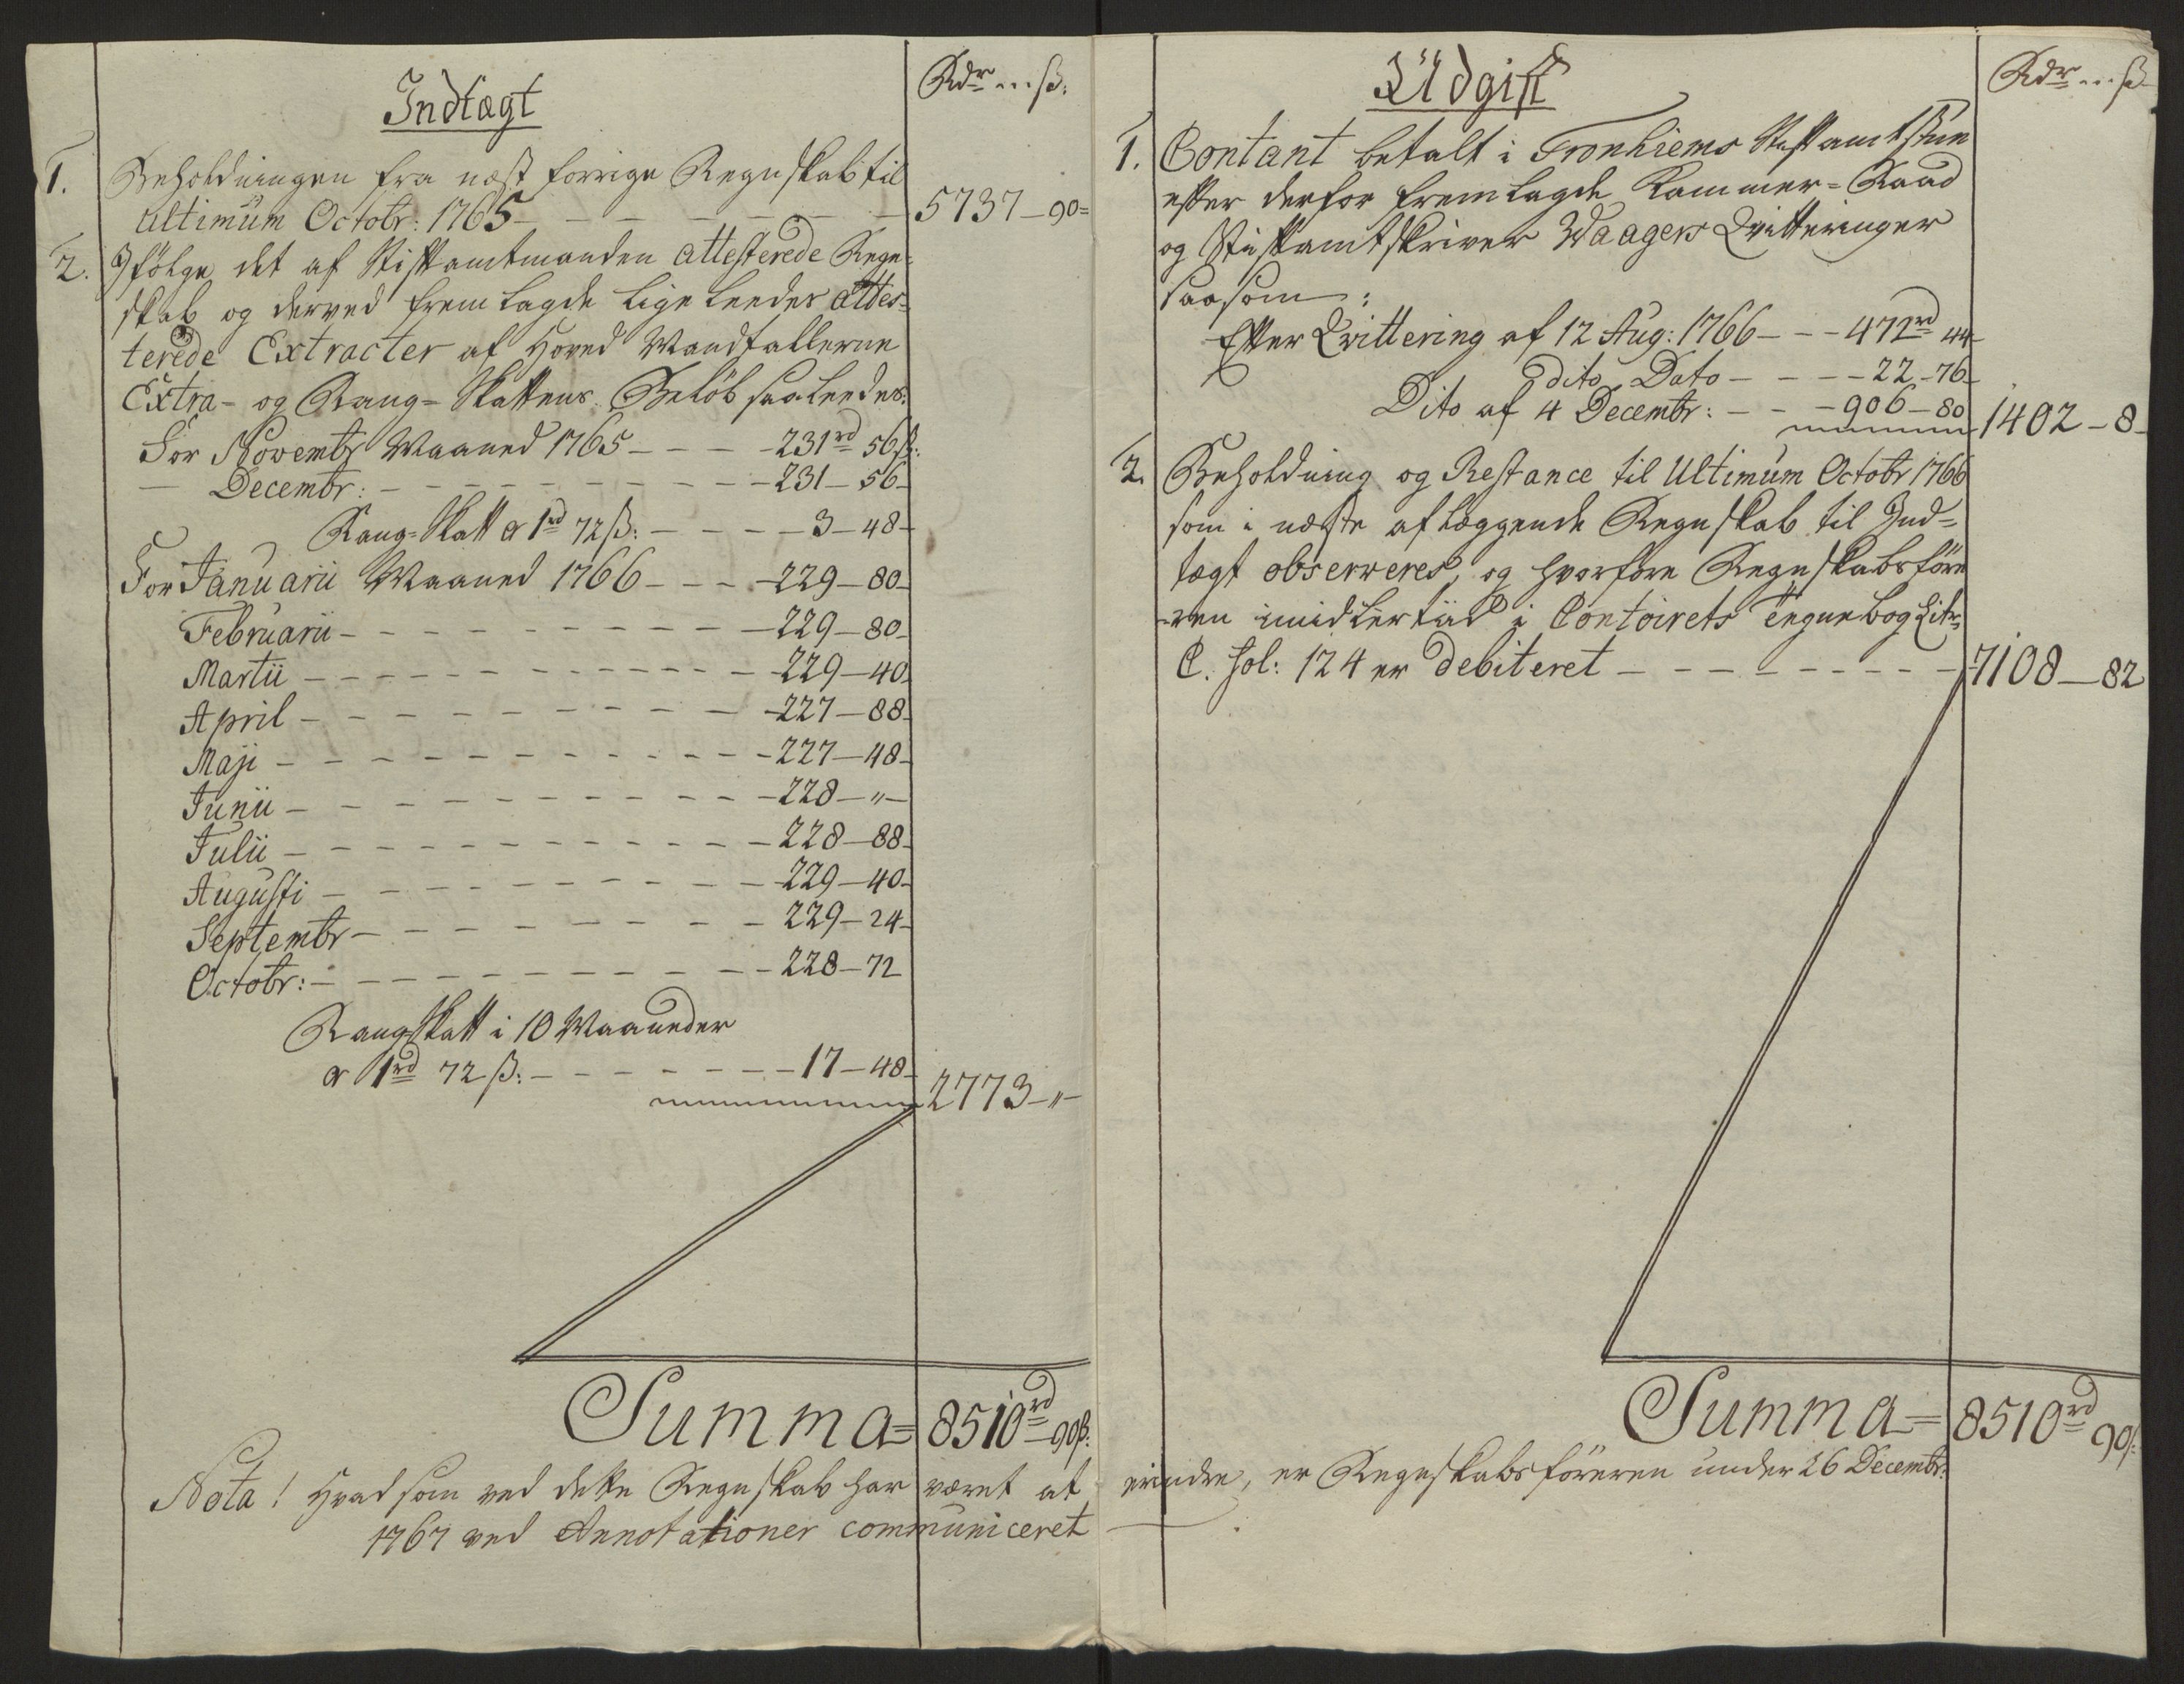 Indtægt
Rdr ... ß.
1. Beholdningen fra næst forrige Regnskab til
Ultimum Octobr: 1765 5737 - 90 =
2. Ifölge det af Stiftamtmanden attesterede Regn-
skab og derved fremlagde ligeleedes attes-
terede Extracter af Hoved Mandtallerne
Extra- og Rang-Skattens Belöb saaleedes:
For Novembr Maaned 1765 - - - 231rd 56ß:
— Decembr: - - - 231 - 56 -
Rang-Skatt a 1rd 72ß: - - - 3 - 48 -
For Januarii Maaned 1766 - - - 229 - 80 -
Februarii - - - 229 - 80 -
Martii - - - 229 - 40
April - - - 227 - 88 -
Maji - - - 227 - 48 -
Junii - - - 228 - " -
Julii - - - 228 - 88 -
Augusti - - - 229 - 40 -
Septembr - - - 229 - 24 -
Octobr: - - - 228 - 72
Rangskatt i 10 Maaneder
a 1rd 72 ß: - - - 17 - 48 -
2773 - " -
Summa = 8510rd 90ß:
Udgift
Rdr ... ß
1. Contant betalt i Tronhiems Stiftamtstue
efter derfor fremlagde Kammer-Raad
og Stiftamtskriver Waagers Qvitteringer
saasom:
Efter Qvittering af 12 Aug: 1766 - - - 472rd 44
dito Dato - - - 22 - 76 -
Dito af 4 Decembr: - - - 906 - 80 1402 - 8 -
2. Beholdning og Restance til Ultimum Octobr 1766
som i næste aflæggende Regnskab til Ind-
tægt observeres, og hvorfore Regnskabsföre
-ren imidlertiid i Contoirets Tegnebog Litr=
C. fol: 124 er debiteret - - - 7108 - 82
Summa = 8510rd 90ß:
Nota! Hvad som ved dette Regnskab har været at erindre, er Regnskabsföreren under 26 Decembr:
1767 ved Annotationer communiceret